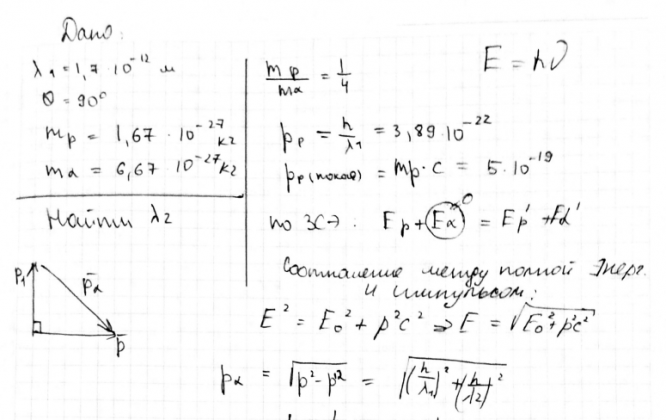 Дано:
λ₁ = 1,7 · 10⁻¹² м
θ = 90°
mp = 1,67 · 10⁻²⁷ кг
mα = 6,67 · 10⁻²⁷ кг
Найти λ₂
P₁
p̄α
p̄
mp/mα = 1/4
E = hν
pp = h/λ₁ = 3,89 · 10⁻²²
pp (покоя) = mp · c = 5 · 10⁻¹⁹
по ЗСЭ: Ep + Eα⁰ = Ep' + Eα'
Соотношение между полной Энерг.
и импульсом:
E² = E₀² + p²c² ⇒ E = √(E₀² + p²c²)
pα = √(p² - p²) = √((h/λ₁)² + (h/λ₂)²)